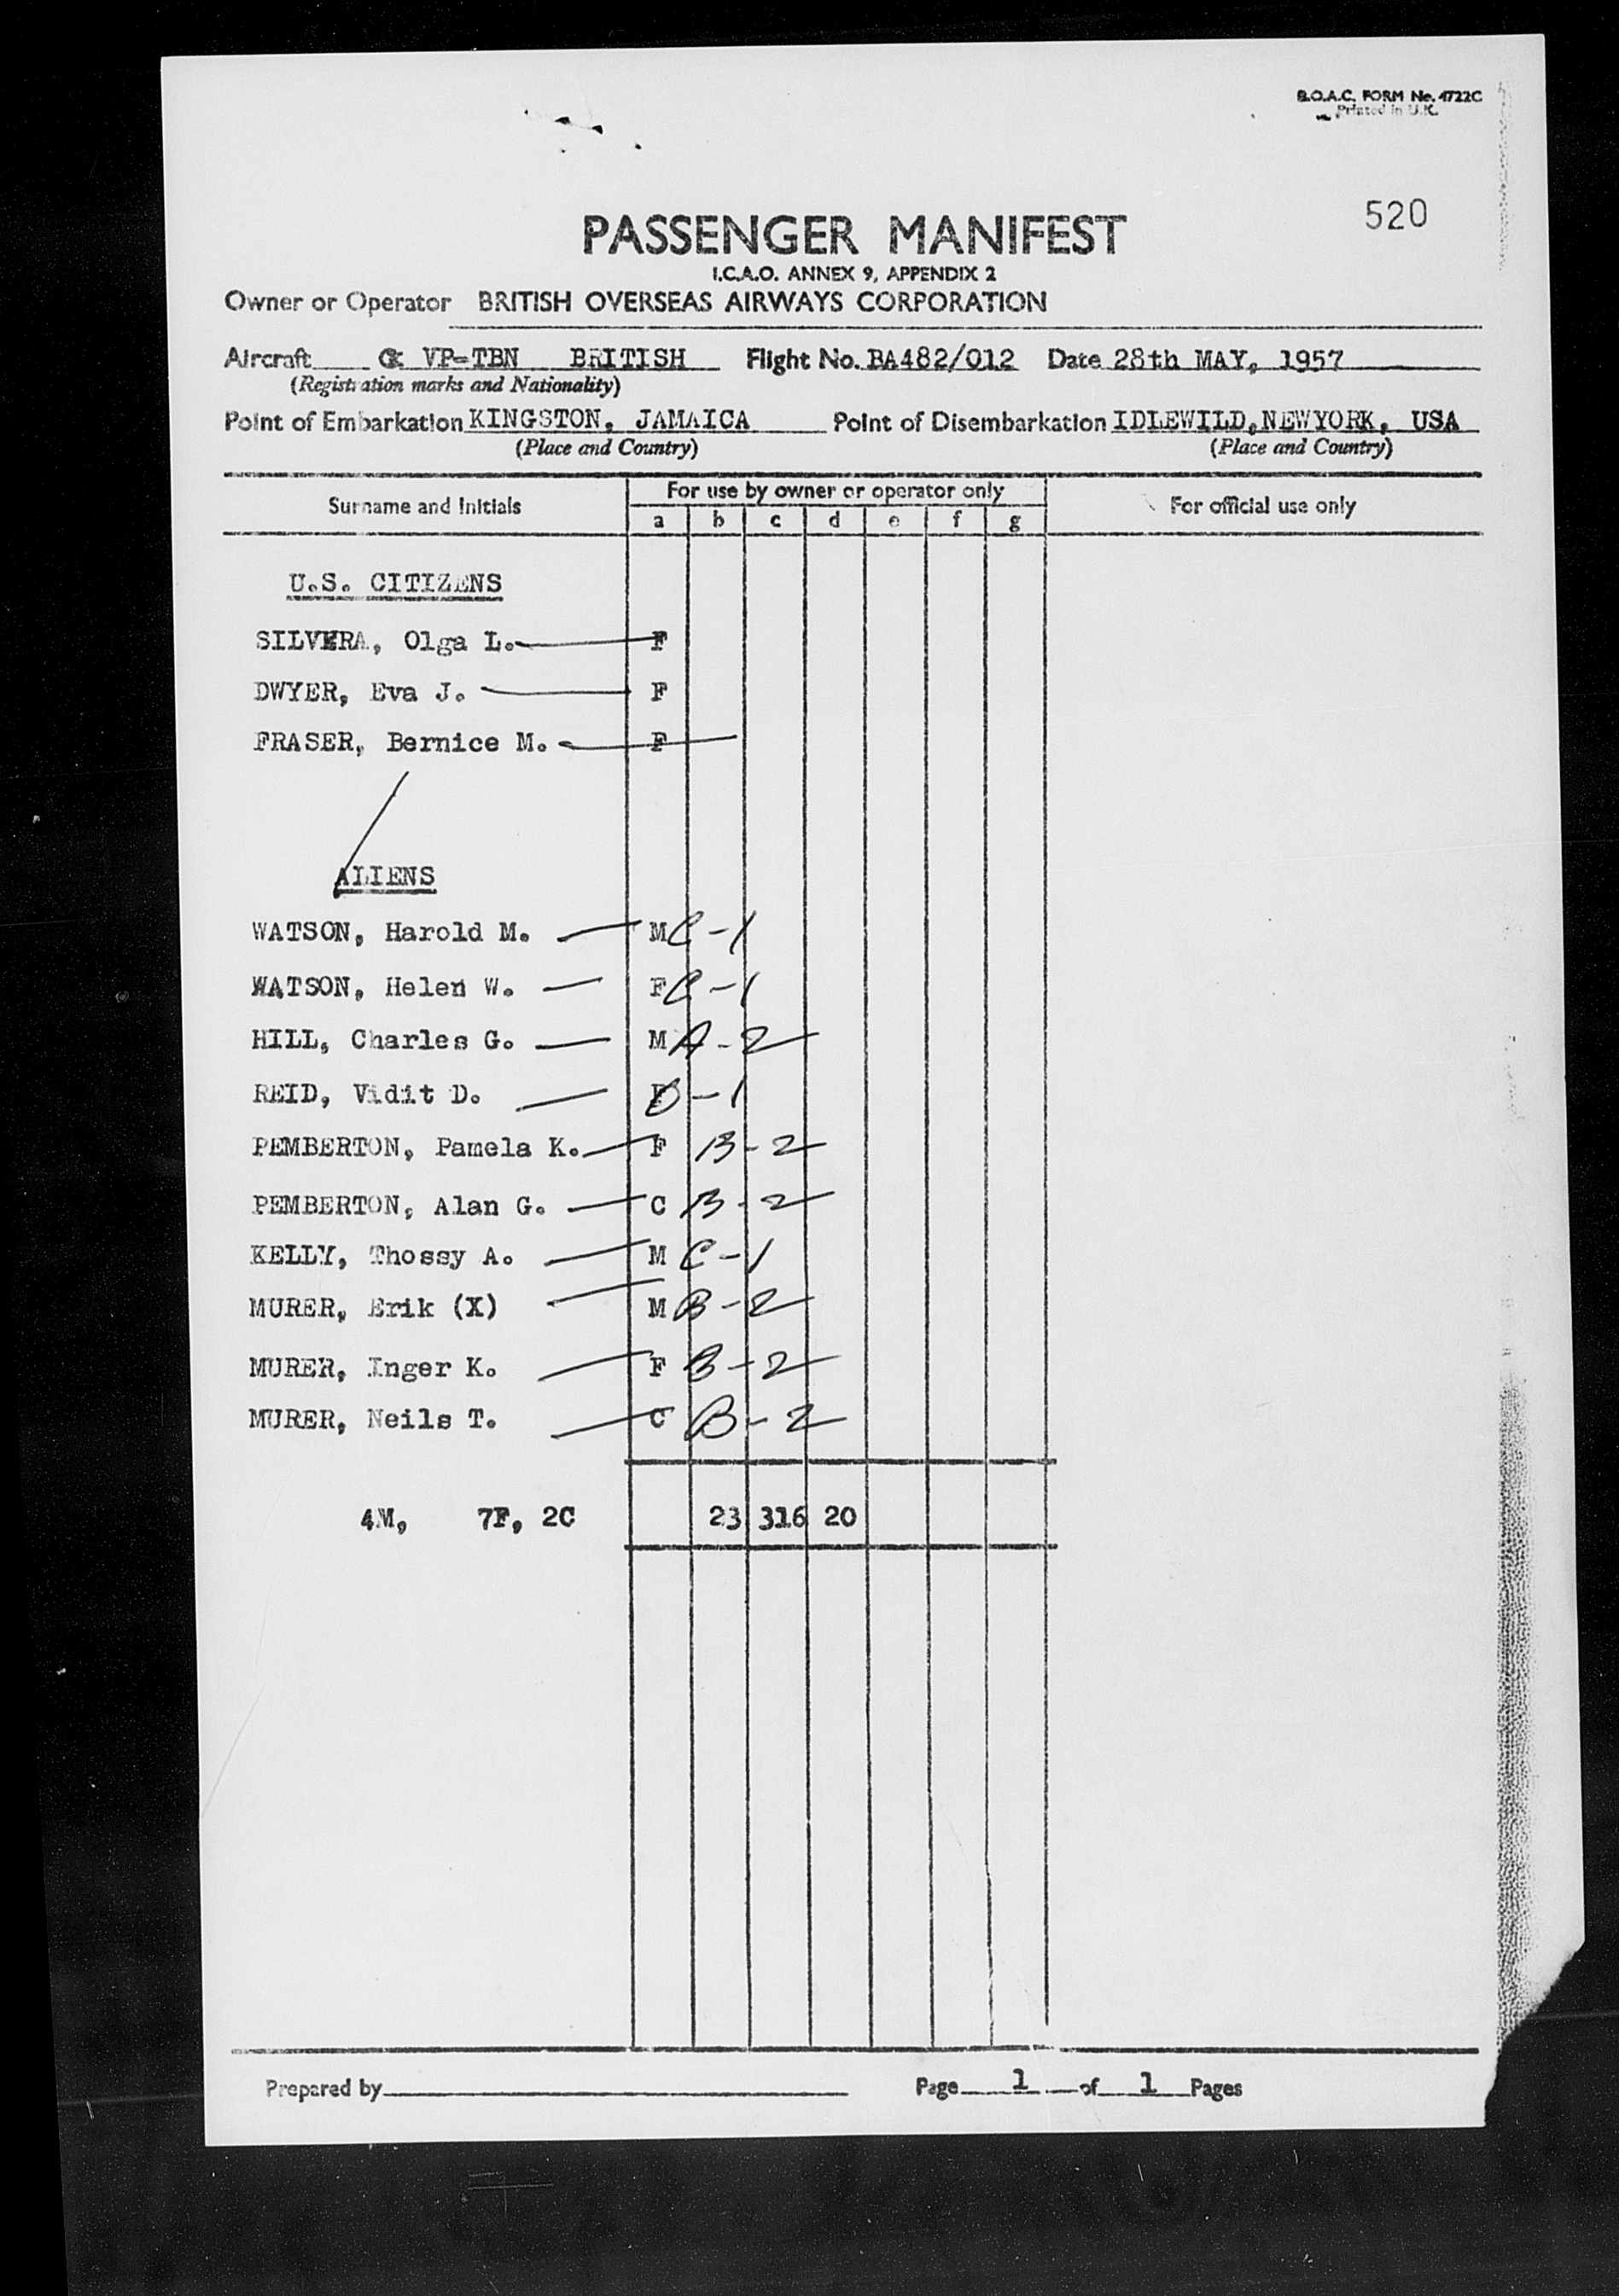 B.O.A.C. FORM No. 4722C
Printed in U.K.
520
PASSENGER MANIFEST
I.C.A.O. ANNEX 9, APPENDIX 2
Owner or Operator BRITISH OVERSEAS AIRWAYS CORPORATION
Aircraft VP-TBN BRITISH Flight No. BA482/012 Date 28th MAY, 1957
(Registration marks and Nationality)
Point of Embarkation KINGSTON, JAMAICA Point of Disembarkation IDLEWILD, NEWYORK, USA
(Place and Country) (Place and Country)
Surname and Initials For use by owner or operator only For official use only
a b c d e f g
U.S. CITIZENS
SILVERA, Olga L. F
DWYER, Eva J. F
FRASER, Bernice M. F
ALIENS
WATSON, Harold M. M C-1
WATSON, Helen W. F C-1
HILL, Charles G. M A-2
REID, Vidit D. F -1
PEMBERTON, Pamela K. F B-2
PEMBERTON, Alan G. C B-2
KELLY, Thossy A. M C-1
MURER, Erik (X) M B-2
MURER, Inger K. F B-2
MURER, Neils T. C B-2
4M, 7F, 2C 23 316 20
Prepared by Page 1 of 1 Pages